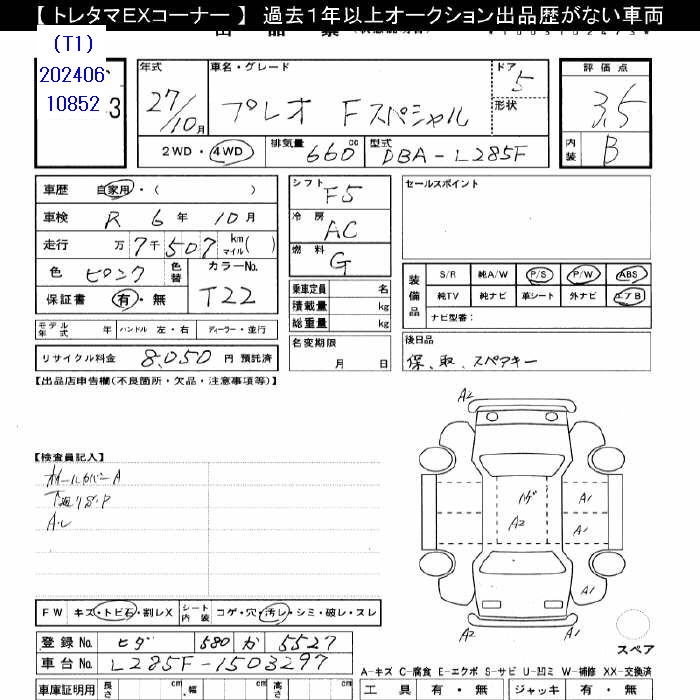 【 トレタマEXコーナー 】 過去1年以上オークション出品歴がない車両
(T1)
202406
10852
3
年式 27/10月
車名・グレード プレオ Fスペシャル
ドア 5
形状
評価点 3.5
内装 B
2WD・4WD
排気量 660cc
型式 DBA-L285F
車歴 自家用・( )
車検 R 6年 10月
走行 万7千507 km マイル( )
色 ピンク 色替
カラーNo. T22
保証書 有・無
シフト F5
冷房 AC
燃料 G
乗車定員 名
積載量 kg
総重量 kg
セールスポイント
装備品
S/R 純A/W P/S P/W ABS
純TV 純ナビ 革シート 外ナビ エアB
ナビ型番:
モデル年式 年 ハンドル 左・右 ディーラー・並行
名変期限 月 日
後日品
保、取、スペアキー
リサイクル料金 8,050 円 預託済
【出品店申告欄(不良箇所・欠品・注意事項等)】
【検査員記入】
ホイールカバーA
下廻りS.P
A2
A1
A1
A1
A2
ハゲ
A2
A2
A2
スペア
FW キズ・トビ石・割レX
シート内装 コゲ・穴・汚レ・シミ・破レ・スレ
登録No. 580 か 5527
車台No. L285F-1503297
A-キズ C-腐食 E-エクボ S-サビ U-凹ミ W-補修 XX-交換済
車庫証明用 長さ cm 幅 cm 高さ cm
工具 有・無 ジャッキ 有・無